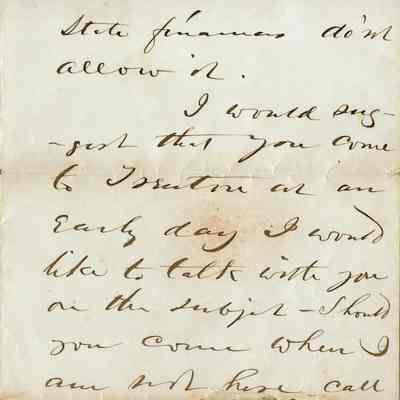 State finances do'nt
allow it.
I would sug-
-gest that you come
to Trenton at an
early day I would
like to talk with you
on the subject - Should
you come when I
am not here call